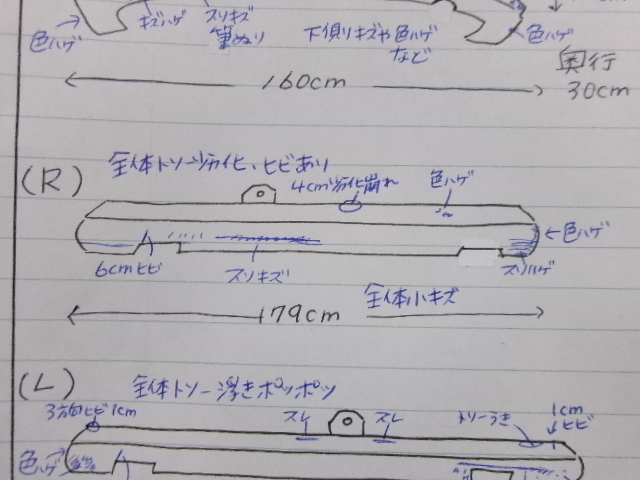 色ハゲ
キズハゲ
スリキズ
筆ぬり
下側リキズや色ハゲ
など
色ハゲ
160cm
奥行
30cm
(R)
全体トソー劣化、ヒビあり
4cm劣化崩れ
色ハゲ
色ハゲ
6cmヒビ
スリキズ
スリハゲ
全体小キズ
179cm
(L)
全体トソー浮きポツポツ
3方向ヒビ1cm
スレ
スレ
トソーうき
1cm
ヒビ
色ハゲ